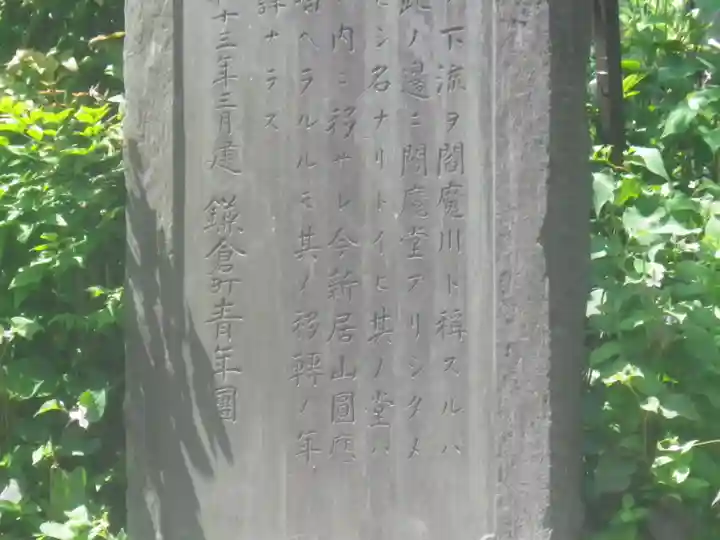 下流ヲ閻魔川ト稱スルハ
此ノ邊ニ閻魔堂アリシタメ
ヒシ名ナリトイヒ其ノ堂ハ
内ニ移サレ今新居山圓應
唱ヘラルルモ其ノ移轉ノ年
詳ナラス
十三年三月建 鎌倉町青年團